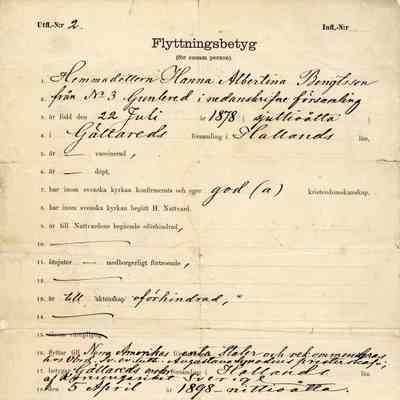 Utfl.-N:r 2. Infl.-N:r
Flyttningsbetyg
(för ensam person).
1. Hemmadottern Hanna Albertina Bengtsson
2. från No 3 Gunlered i nedanskrifne församling
3. är född den 22 Juli år 1878 ( sjuttioåtta )
4. i Gällareds församling i Hallands län,
5. är — vaccinerad,
6. är — döpt,
7. har inom svenska kyrkan konfirmerats och eger god (a) kristendomskunskap,
8. har inom svenska kyrkan begått H. Nattvard.
9. är till Nattvardens begående oförhindrad,
10. —
11. åtnjuter — medborgerligt förtroende,
12. —
13. är till äktenskap oförhindrad, "
14. —
15.
16. flyttar till Norra Amerikas förenta Stater och rekommenderas
hos Augustana Synodens presterskap,
17. betygar Gällareds församling i Hallands
Sverige
18. den 5 April år 1898 - nittioåtta.